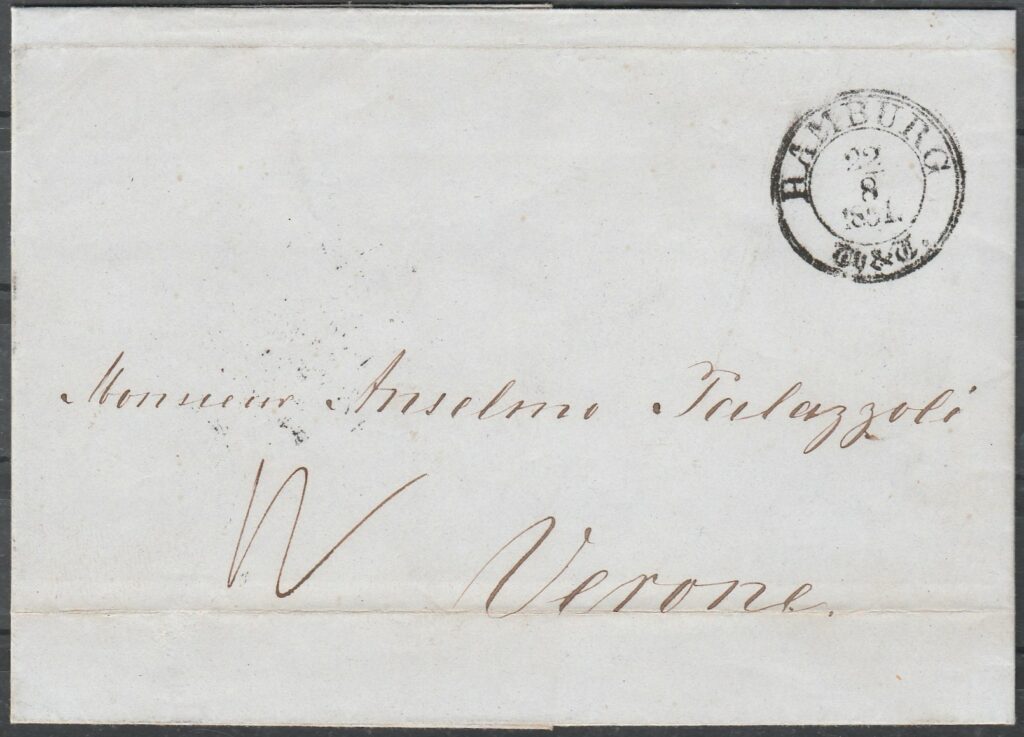 HAMBURG
22
8
1851.
Monsieur Anselmo Palazzoli
Verone.